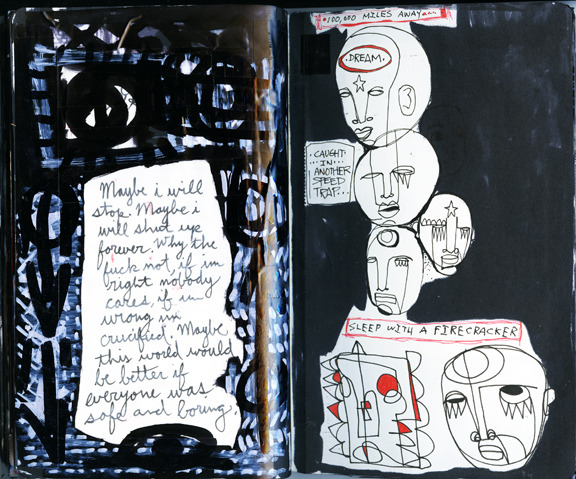 Maybe i will
stop. Maybe i
will shut up
forever. Why the
fuck not, if im
right nobody
cares, if im
wrong im
crucified. Maybe
this world would
be better if
everyone was
safe and boring.
100,000 MILES AWAY...
DREAM.
CAUGHT
IN
ANOTHER
SPEED
TRAP...
SLEEP WITH A FIRECRACKER